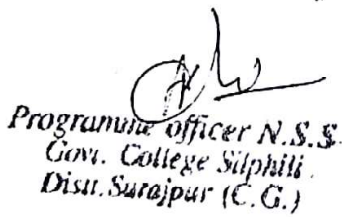 Programme officer N.S.S.
Govt. College Silphili
Distt. Surajpur (C.G.)